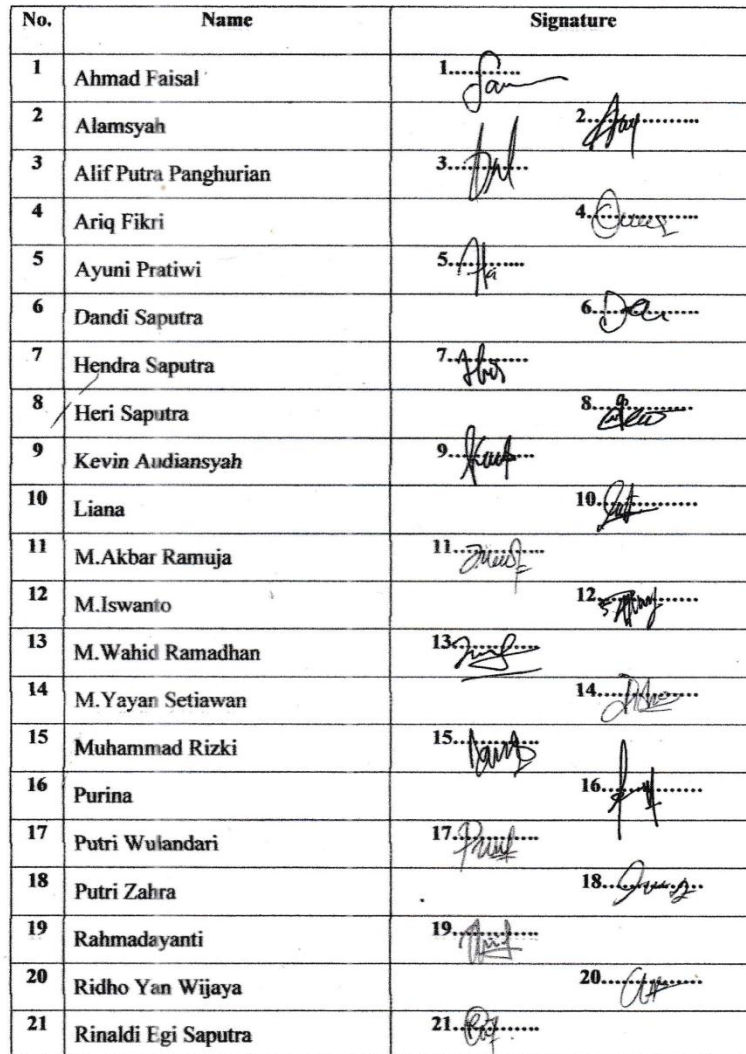 No. Name Signature
1 Ahmad Faisal 1............
2 Alamsyah 2................
3 Alif Putra Panghurian 3............
4 Ariq Fikri 4................
5 Ayuni Pratiwi 5............
6 Dandi Saputra 6................
7 Hendra Saputra 7............
8 Heri Saputra 8................
9 Kevin Audiansyah 9............
10 Liana 10................
11 M.Akbar Ramuja 11............
12 M.Iswanto 12................
13 M.Wahid Ramadhan 13............
14 M.Yayan Setiawan 14................
15 Muhammad Rizki 15............
16 Purina 16................
17 Putri Wulandari 17............
18 Putri Zahra 18................
19 Rahmadayanti 19............
20 Ridho Yan Wijaya 20................
21 Rinaldi Egi Saputra 21............